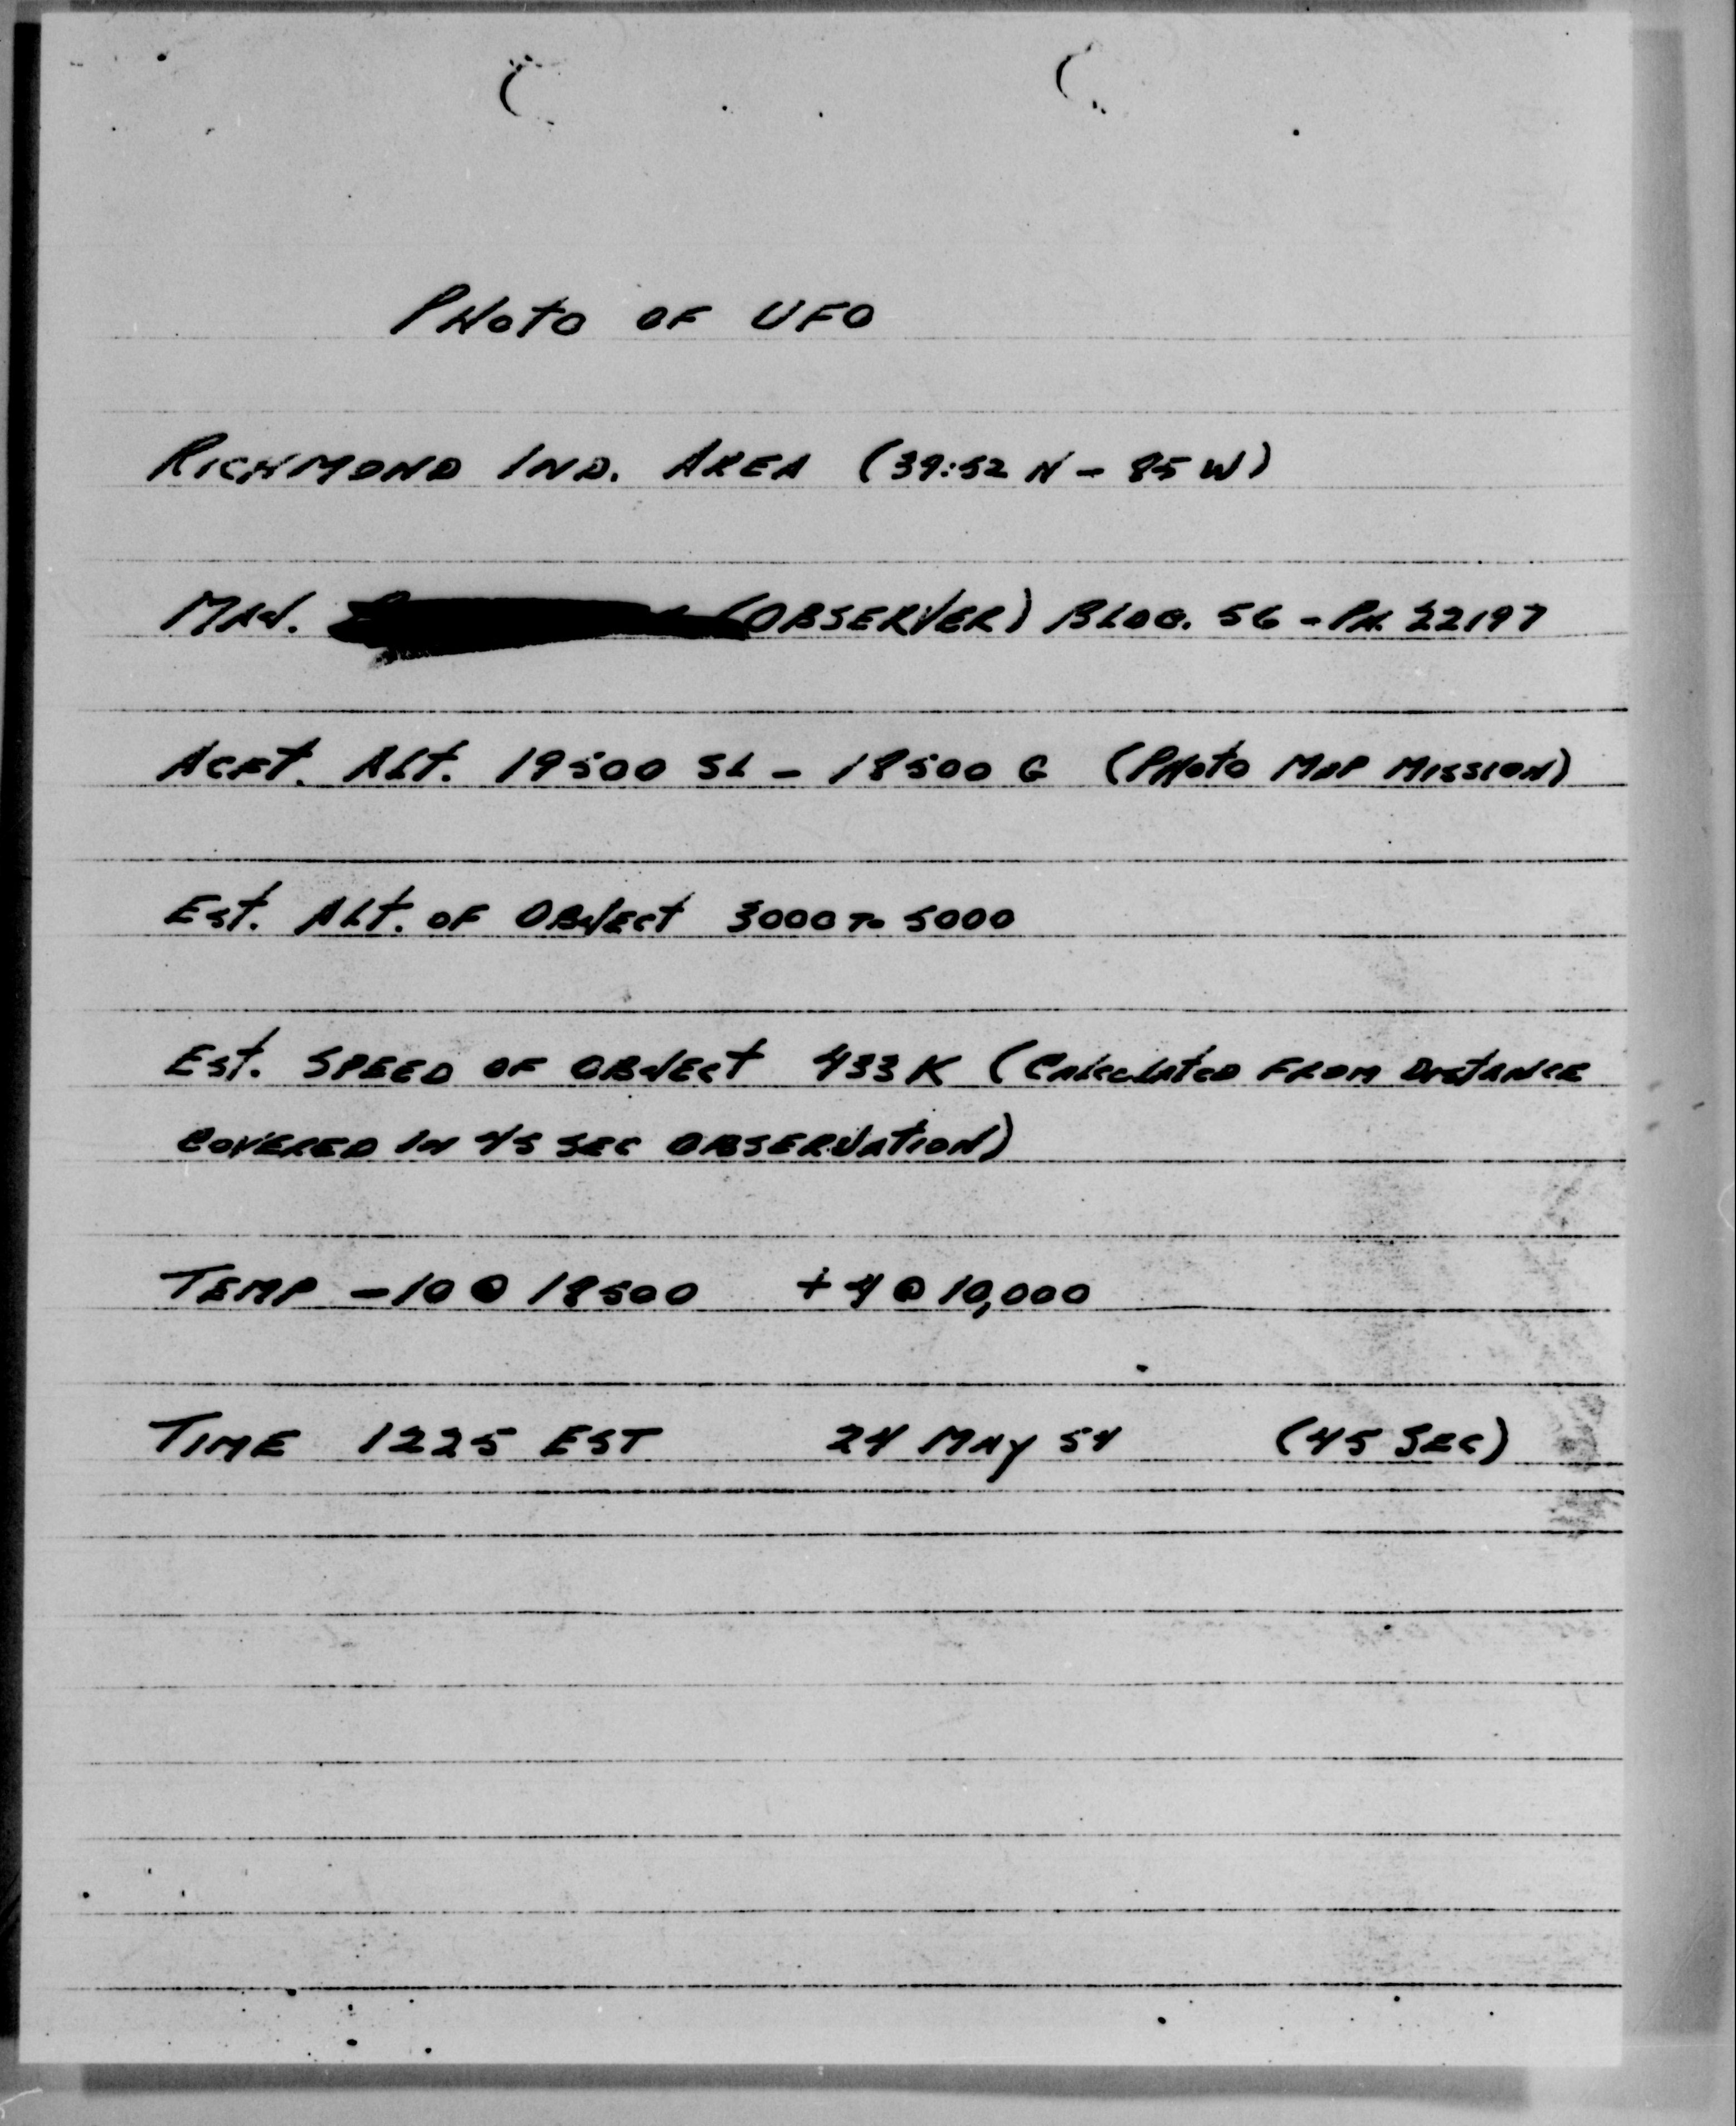 PHOTO OF UFO
RICHMOND IND. AREA (39:52 N - 85 W)
MAJ. (OBSERVER) BLDG. 56 - PH. 22197
ACFT. ALT. 19500 SL - 18500 G (PHOTO MAP MISSION)
EST. ALT. OF OBJECT 3000 TO 5000
EST. SPEED OF OBJECT 433 K (CALCULATED FROM DISTANCE
COVERED IN 45 SEC OBSERVATION)
TEMP -10 @ 18500 +4 @ 10,000
TIME 1225 EST 24 MAY 54 (45 SEC)